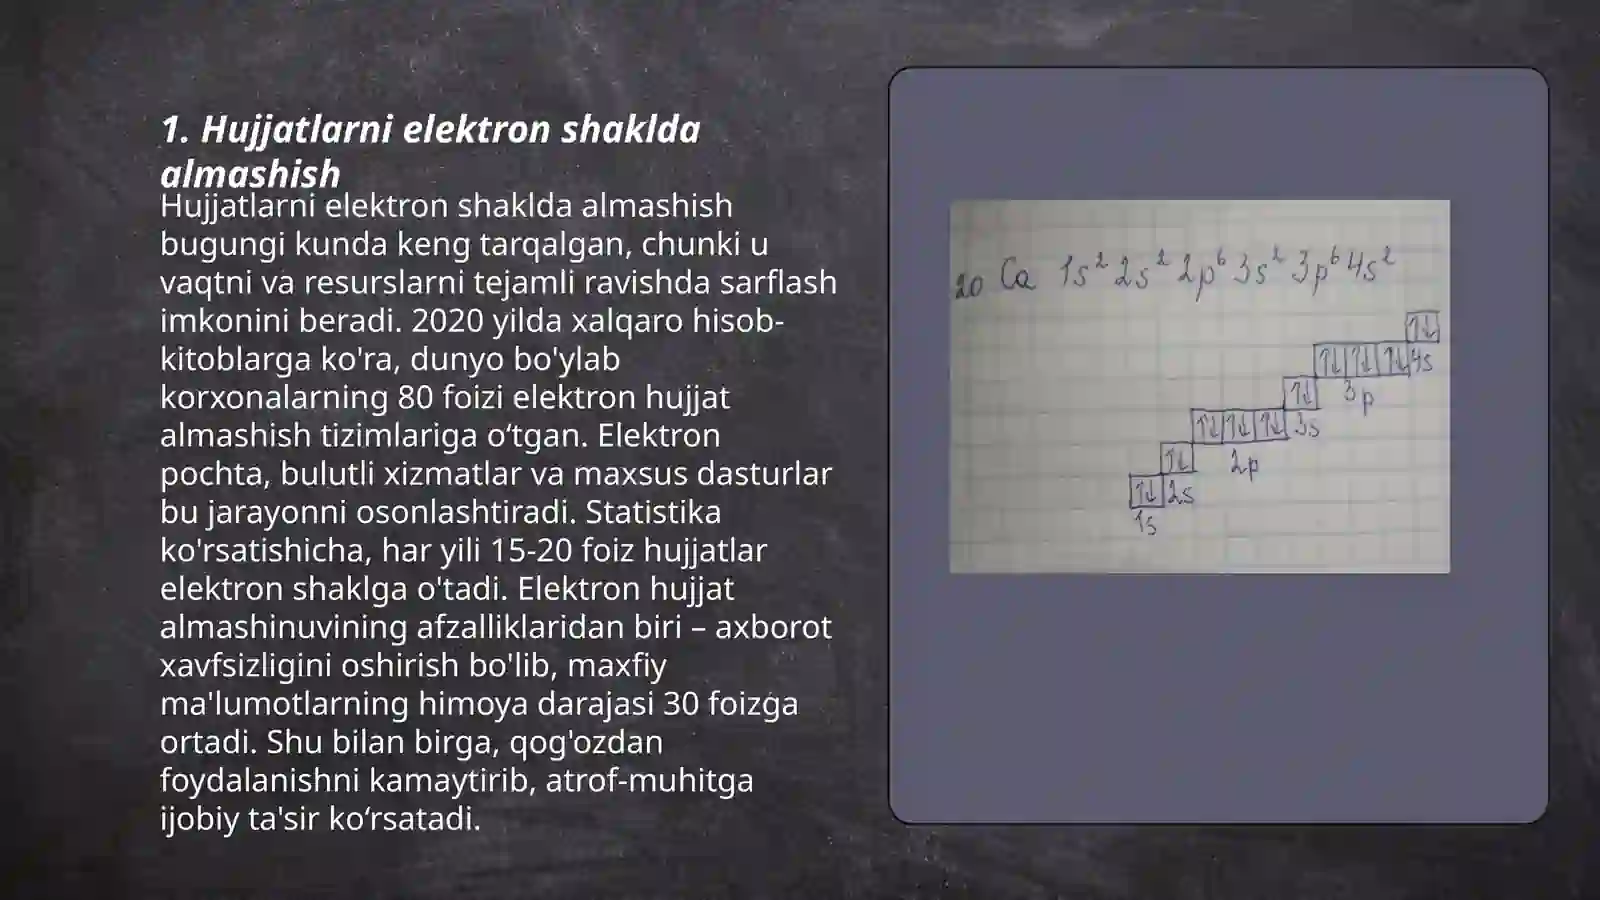 1. Hujjatlarni elektron shaklda
almashish
Hujjatlarni elektron shaklda almashish
bugungi kunda keng tarqalgan, chunki u
vaqtni va resurslarni tejamli ravishda sarflash
imkonini beradi. 2020 yilda xalqaro hisob-
kitoblarga ko'ra, dunyo bo'ylab
korxonalarning 80 foizi elektron hujjat
almashish tizimlariga o‘tgan. Elektron
pochta, bulutli xizmatlar va maxsus dasturlar
bu jarayonni osonlashtiradi. Statistika
ko'rsatishicha, har yili 15-20 foiz hujjatlar
elektron shaklga o'tadi. Elektron hujjat
almashinuvining afzalliklaridan biri – axborot
xavfsizligini oshirish bo'lib, maxfiy
ma'lumotlarning himoya darajasi 30 foizga
ortadi. Shu bilan birga, qog'ozdan
foydalanishni kamaytirib, atrof-muhitga
ijobiy ta'sir ko‘rsatadi.
₂₀ Ca 1s² 2s² 2p⁶ 3s² 3p⁶ 4s²
↑↓
↑↓ ↑↓ ↑↓ 4s
↑↓ 3p
↑↓ ↑↓ ↑↓ 3s
↑↓ 2p
↑↓ 2s
1s